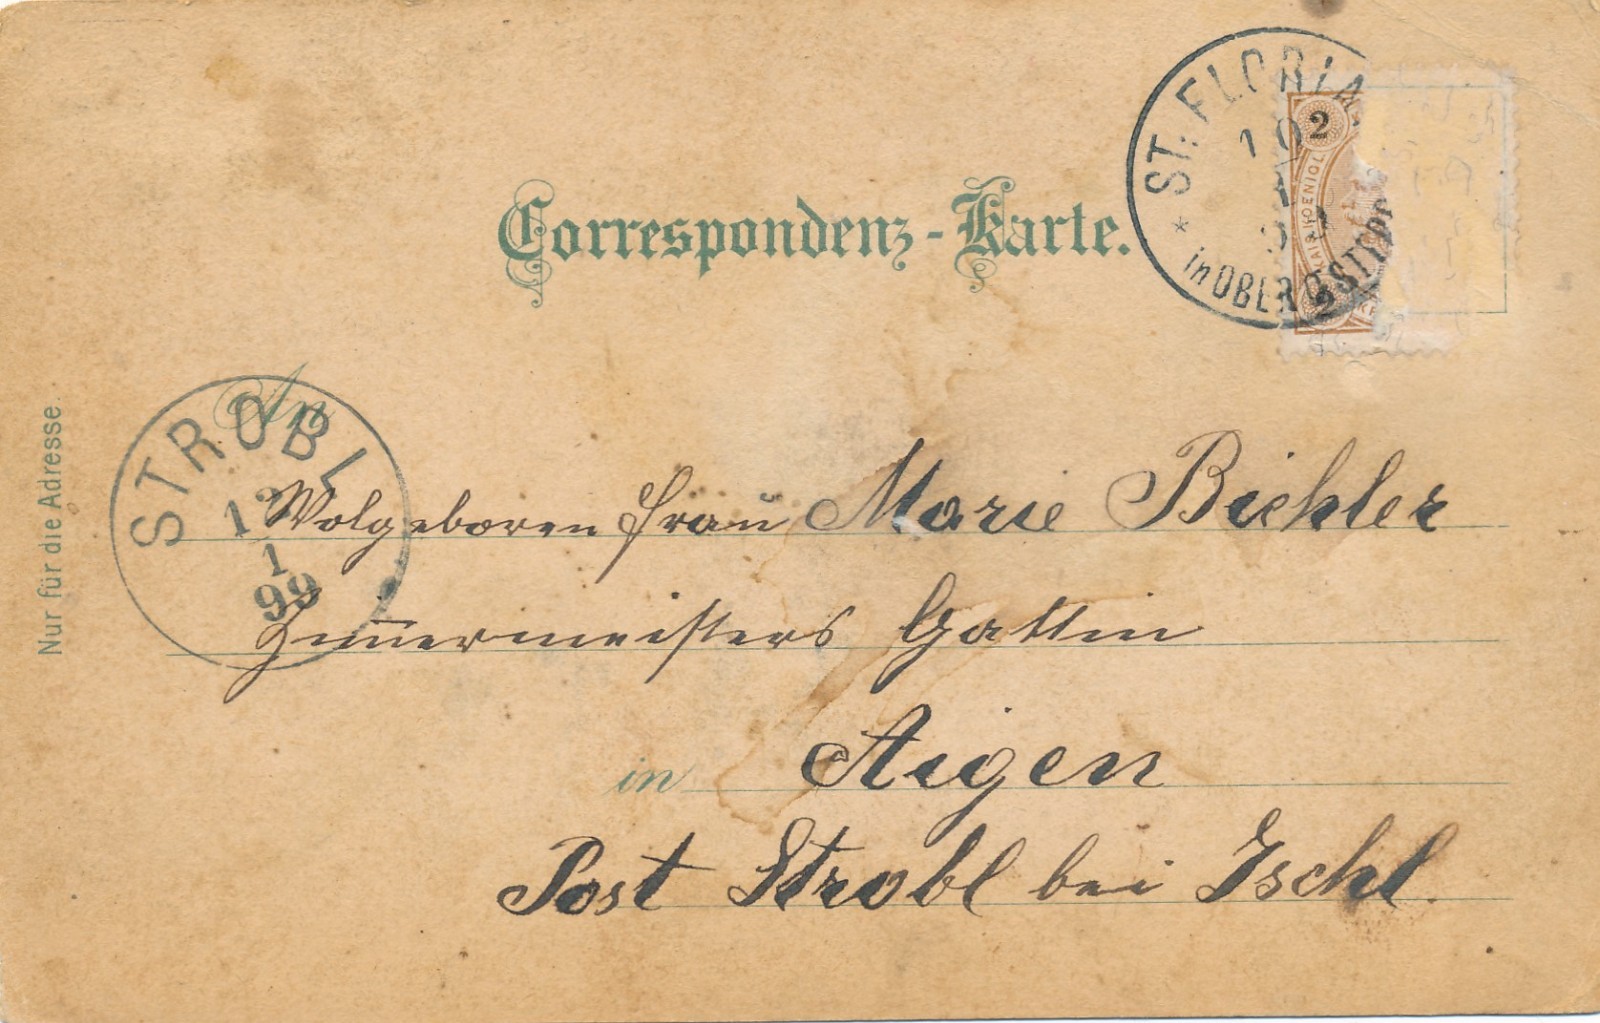 Correspondenz-Karte.
ST. FLORIA
10
in OBEROSTERR
2
KAIS. KOENIGL
2
An
STROBL
12
1
99
Wolgeboren Frau Marie Bichler
Zimmermeisters Gattin
in Aigen
Post Strobl bei Ischl.
Nur für die Adresse.